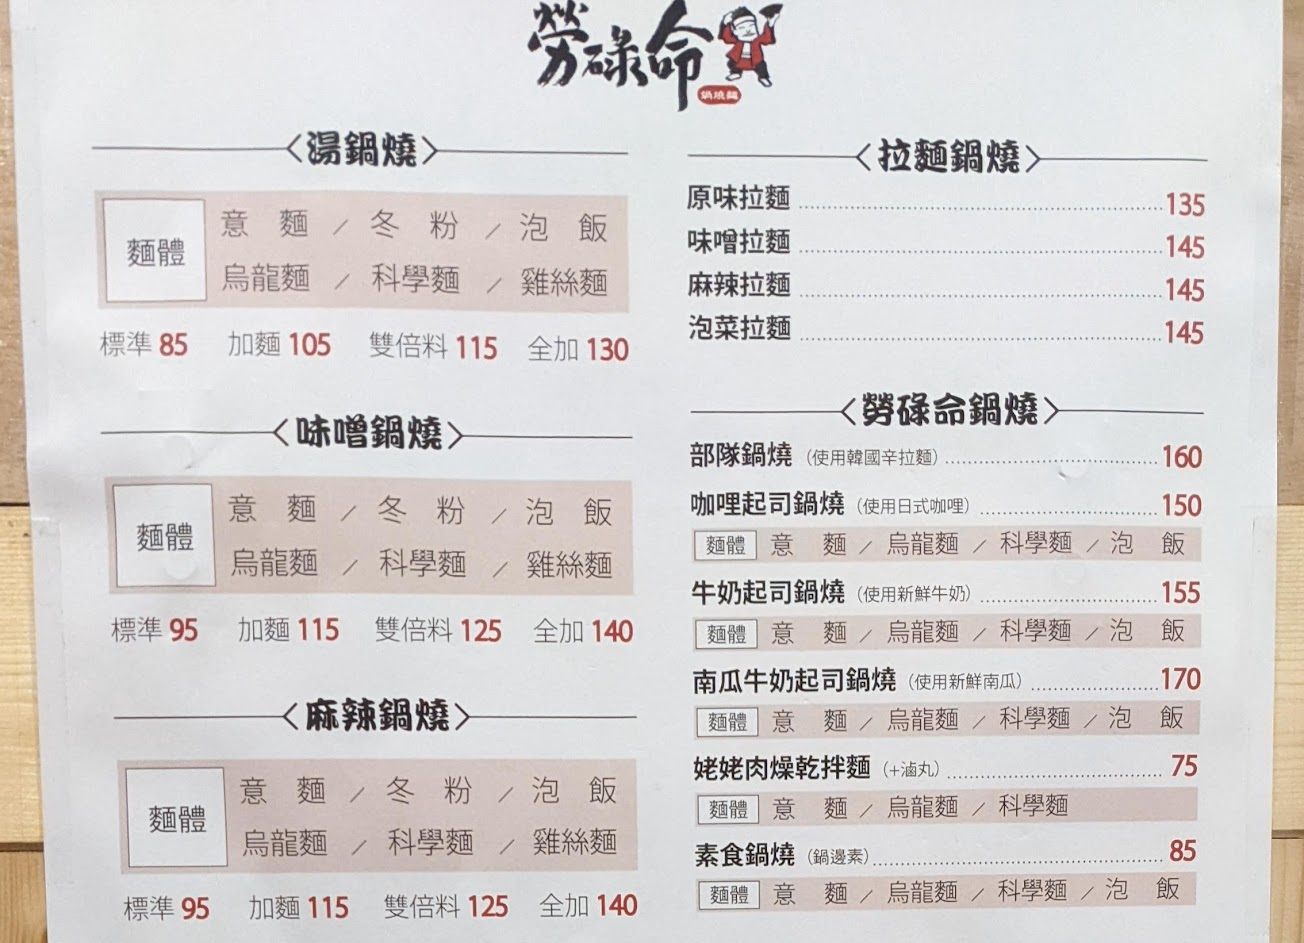 勞碌命
鍋燒麵
湯鍋燒
麵體
意麵／冬粉／泡飯
烏龍麵／科學麵／雞絲麵
標準 85 加麵 105 雙倍料 115 全加 130
味噌鍋燒
麵體
意麵／冬粉／泡飯
烏龍麵／科學麵／雞絲麵
標準 95 加麵 115 雙倍料 125 全加 140
麻辣鍋燒
麵體
意麵／冬粉／泡飯
烏龍麵／科學麵／雞絲麵
標準 95 加麵 115 雙倍料 125 全加 140
拉麵鍋燒
原味拉麵 135
味噌拉麵 145
麻辣拉麵 145
泡菜拉麵 145
勞碌命鍋燒
部隊鍋燒（使用韓國辛拉麵） 160
咖哩起司鍋燒（使用日式咖哩） 150
麵體 意麵／烏龍麵／科學麵／泡飯
牛奶起司鍋燒（使用新鮮牛奶） 155
麵體 意麵／烏龍麵／科學麵／泡飯
南瓜牛奶起司鍋燒（使用新鮮南瓜） 170
麵體 意麵／烏龍麵／科學麵／泡飯
姥姥肉燥乾拌麵（+滷丸） 75
麵體 意麵／烏龍麵／科學麵
素食鍋燒（鍋邊素） 85
麵體 意麵／烏龍麵／科學麵／泡飯